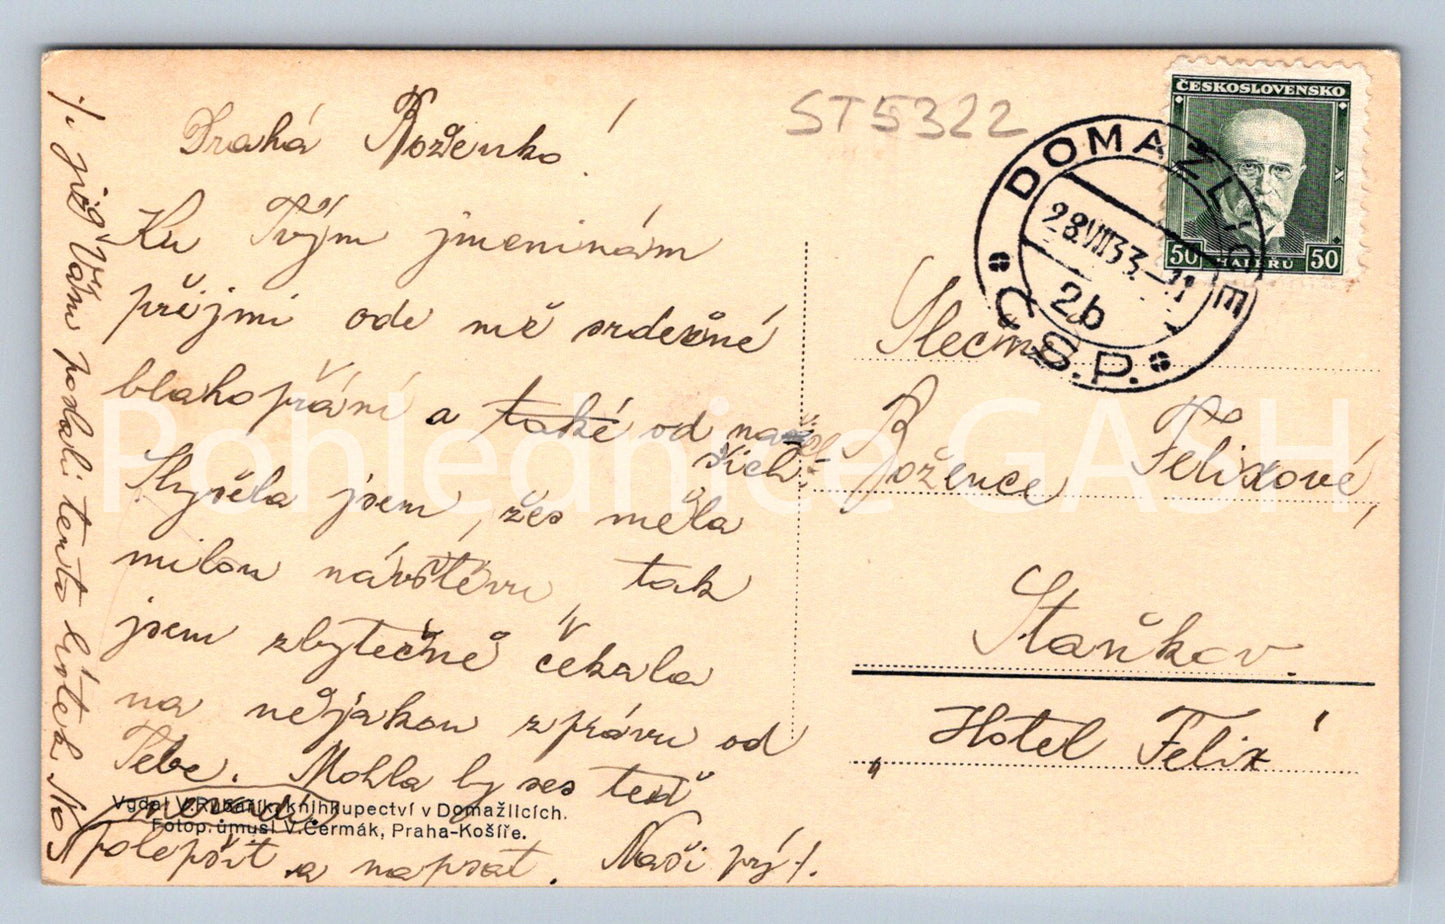 ST5322
ČESKOSLOVENSKO
50 HALÉŘŮ 50
DOMAŽLICE
28.VII.33.-11
2b
Č.S.P.
Drahá Boženko!
Ku Tvým jmeninám
přijmi ode mě srdečné
blahopřání a také od na-
šich.
Slyšela jsem, žes měla
milou návštěvu, tak
jsem zbytečně čekala
na nějakou zprávu od
Tebe. Mohla by ses teď
polepšit a napsat. Naši prý ./.
./. již Vám poslali tento lístek. No
nevadí.
Slečna
Božence Felixové,
Staňkov.
"Hotel Felix"
Vydal V. knihkupectví v Domažlicích.
Fotop. úmusl V. Čermák, Praha-Košíře.
Pohlednice GASH